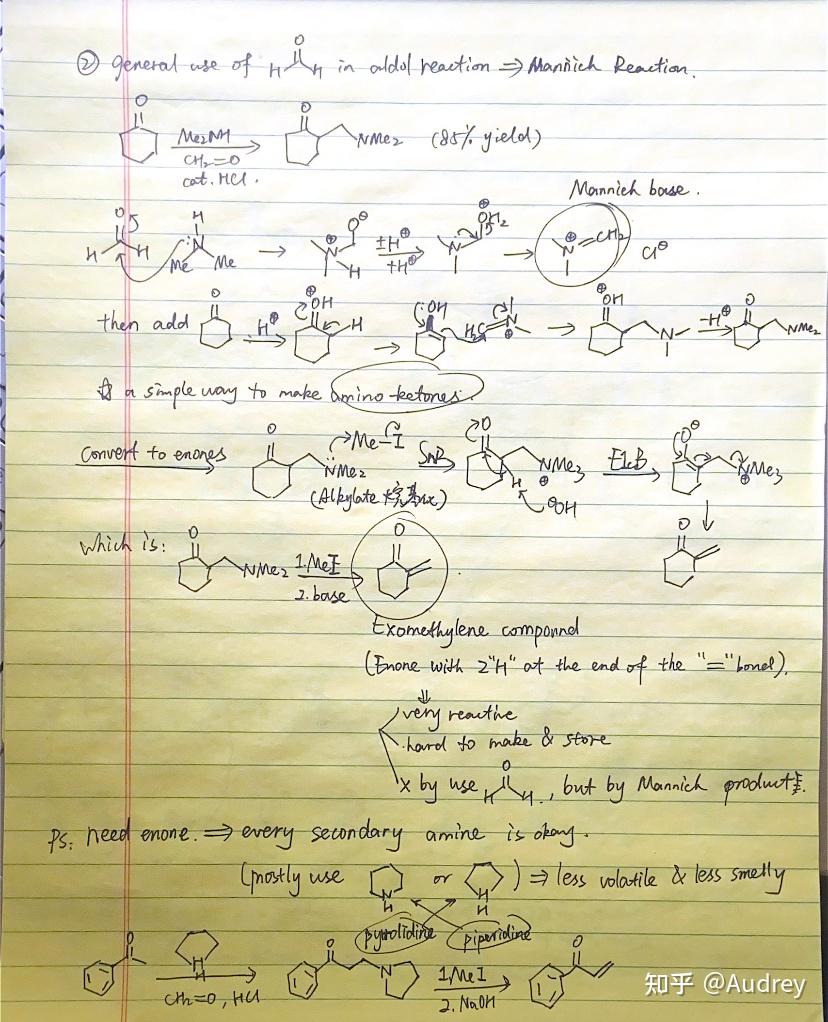 ② general use of H O H in aldol reaction ⇒ Mannich Reaction.
O Me2NH CH2=O cat. HCl. O NMe2 (85% yield)
Mannich base.
H O H H :N Me Me → ⊕N O⊖ H ±H⊕ +H⊕ N ⊕OH2 → ⊕N=CH2 Cl⊖
then add O H⊕ ⊕OH H → :OH H2C=N⊕ → ⊕OH N -H⊕ O NMe2
☆ a simple way to make amino-ketones.
convert to enones O NMe2 Me-I O NMe3 ⊕ H ⊖OH E1cB O⊖ NMe3 ⊕
(Alkylate 烷基化)
O
which is: O NMe2 1.MeI 2. base O
Exomethylene compound
(Enone with 2"H" at the end of the "=" bond).
⇓
very reactive
hard to make & store
x by use H O H, but by Mannich product
Ps: need enone. ⇒ every secondary amine is okay.
(mostly use N H or N H) ⇒ less volatile & less smelly
pyrolidine piperidine
O N H CH2=O, HCl O N 1.MeI 2. NaOH O
知乎 @Audrey